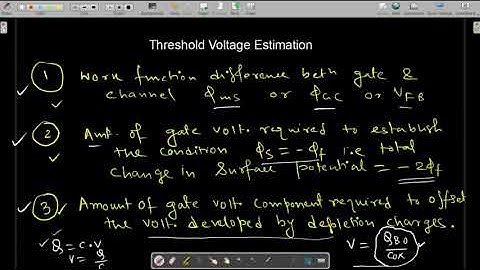 Threshold Voltage Estimation
1 Work function difference betn gate &
channel φms or φGC or VFB
2 Amt. of gate volt. required to establish
the condition φs = -φf i.e total
change in surface potential = -2φf
3 Amount of gate volt. component required to offset
the volt. developed by depletion charges.
Q = C·V
V = Q/C
V = QB0/Cox